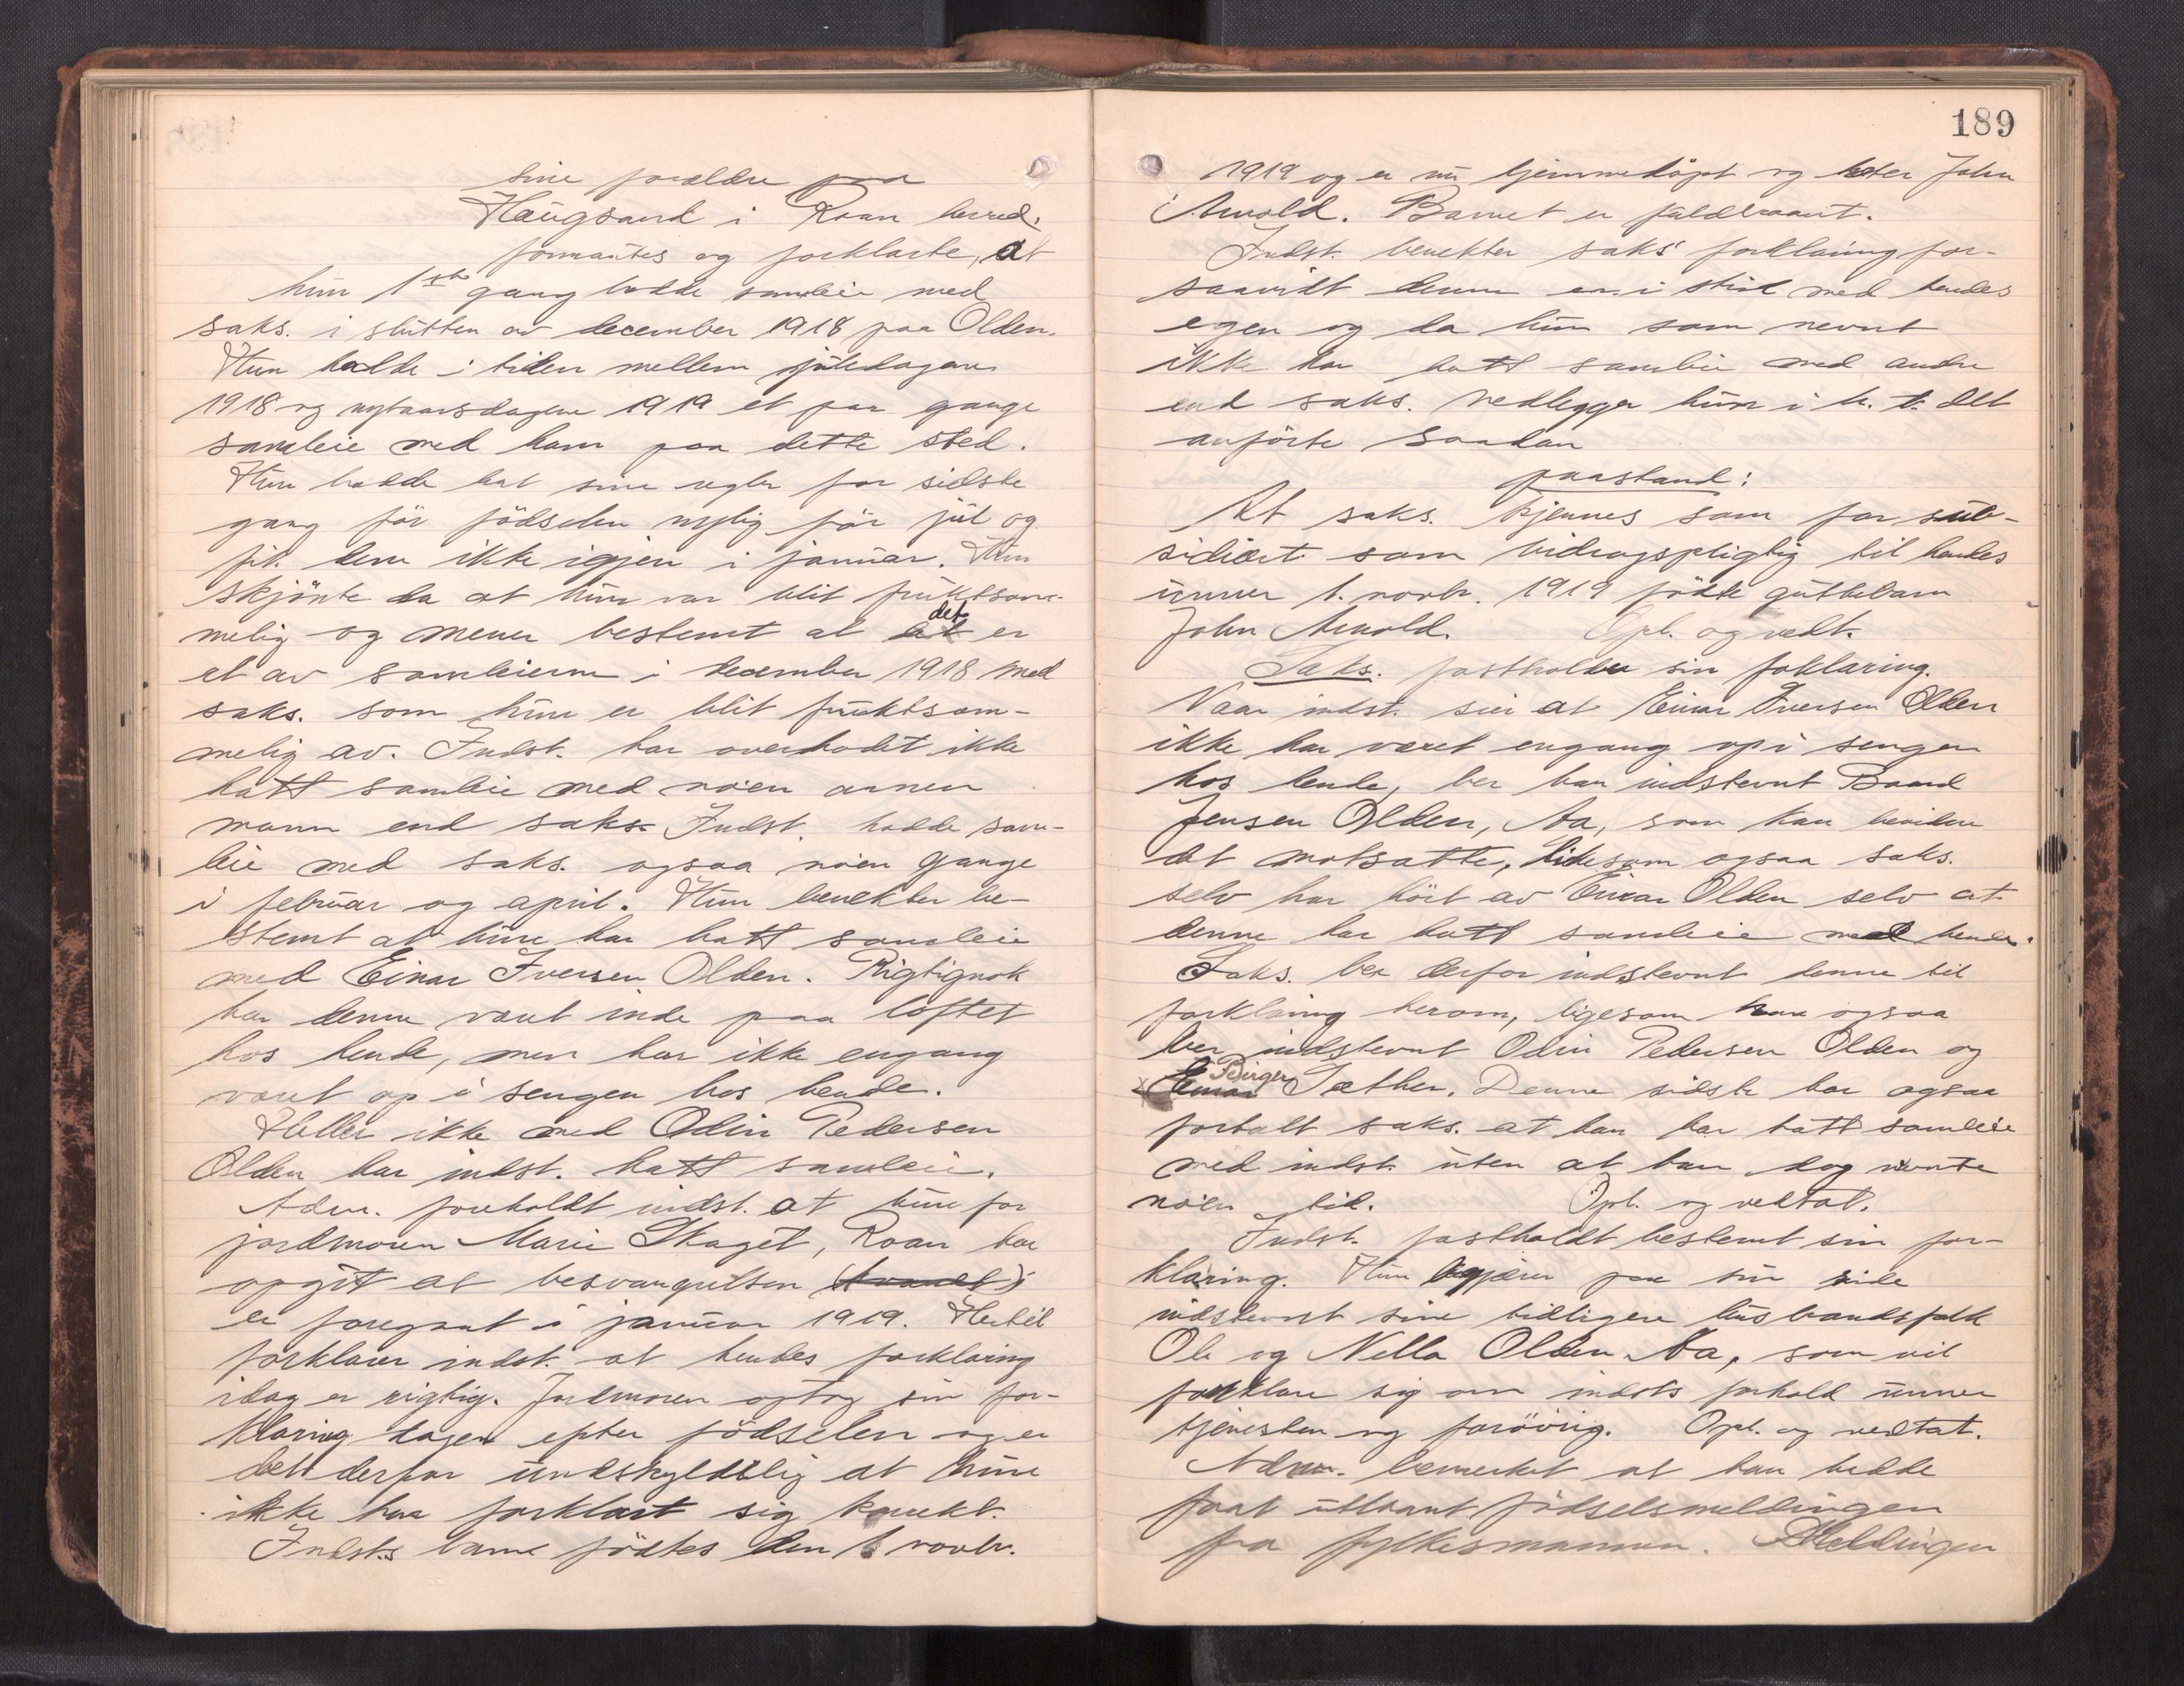 sine forældre paa
Haugsand i Roan herred.
formantes og forklarte, at
hun 1ste gang hadde samleie med
saks. i slutten av december 1918 paa Olden.
Hun hadde i tiden mellem juledagene
1918 og nytaarsdagene 1919 et par gange
samleie med ham paa dette sted.
Hun hadde hat sine regler for sidste
gang før fødselen nylig før jul og
fik dem ikke igjen i januar. Hun
skjønte da at hun var blit fruktsom-
melig og mener bestemt at det er
et av samleierne i december 1918 med
saks. som hun er blit fruktsom-
melig av. Indst. har overhodet ikke
hatt samleie med noen annen
mann end saks. Indst. hadde sam-
leie med saks. ogsaa noen gange
i februar og april. Hun benekter be-
stemt at hun har hatt samleie
med Einar Iversen Olden. Rigtignok
har denne vært inde paa loftet
hos hende, men har ikke engang
været op i sengen hos hende.
Heller ikke med Odin Pedersen
Olden har indst. hatt samleie.
Adm. foreholdt indst. at hun for
jordmoren Marie Skaget, Roan har
opgit at besvangrelsen
er foregaat i januar 1919. Hertil
forklarer indst. at hendes forklaring
idag er rigtig. Jordmoren optog sin for-
klaring dagen efter fødselen og er
det derfor undskyldelig at hun
ikke har forklart sig korrekt.
Indst.s barn fødtes den 1 novbr.
189
1919 og er nu hjemmedøpt og heter John
Arnold. Barnet er fuldbaaret.
Indst. benekter saks' forklaring for-
saavidt denne er i strid med hendes
egen og da hun som nevnt
ikke har hatt samleie med andre
end saks. nedlegger hun i h. t. det
anførte saadan
paastand:
At saks. kjennes som far sub-
sidiært som bidragspligtig til hendes
unner 1. novbr. 1919 fødte guttebarn
John Arnold. Opl. og vedt.
Saks. fastholder sin foklaring.
Naar indst. sier at Einar Iversen Olden
ikke har været engang op i sengen
hos hende, ber han indstevnt Baard
Jensen Olden, Aa, som kan bevidne
det motsatte, likesom ogsaa saks.
selv har hørt av Einar Olden selv at
denne har hatt samleie med hende.
Saks. ber derfor indstevnt denne til
forklaring herom, ligesom han ogsaa
ber indstevnt Odin Pedersen Olden og
Birger Sæther. Denne sidste har ogsaa
fortalt saks. at han har hatt samleie
med indst. uten at han dog nevnte
noen tid. Opl. og vedtat.
Indst. fastholdt bestemt sin for-
klaring. Hun begjærer paa sin side
indstevnt sine tidligere husbondsfolk
Ole og Nella Olden Aa, som vil
forklare sig om indsts forhold unner
tjenesten og forøvrig. Opl. og vedtat.
Adm. bemerket at han hadde
faat utlaant fødselsmeldingen
fra fylkesmannen. Meldingen